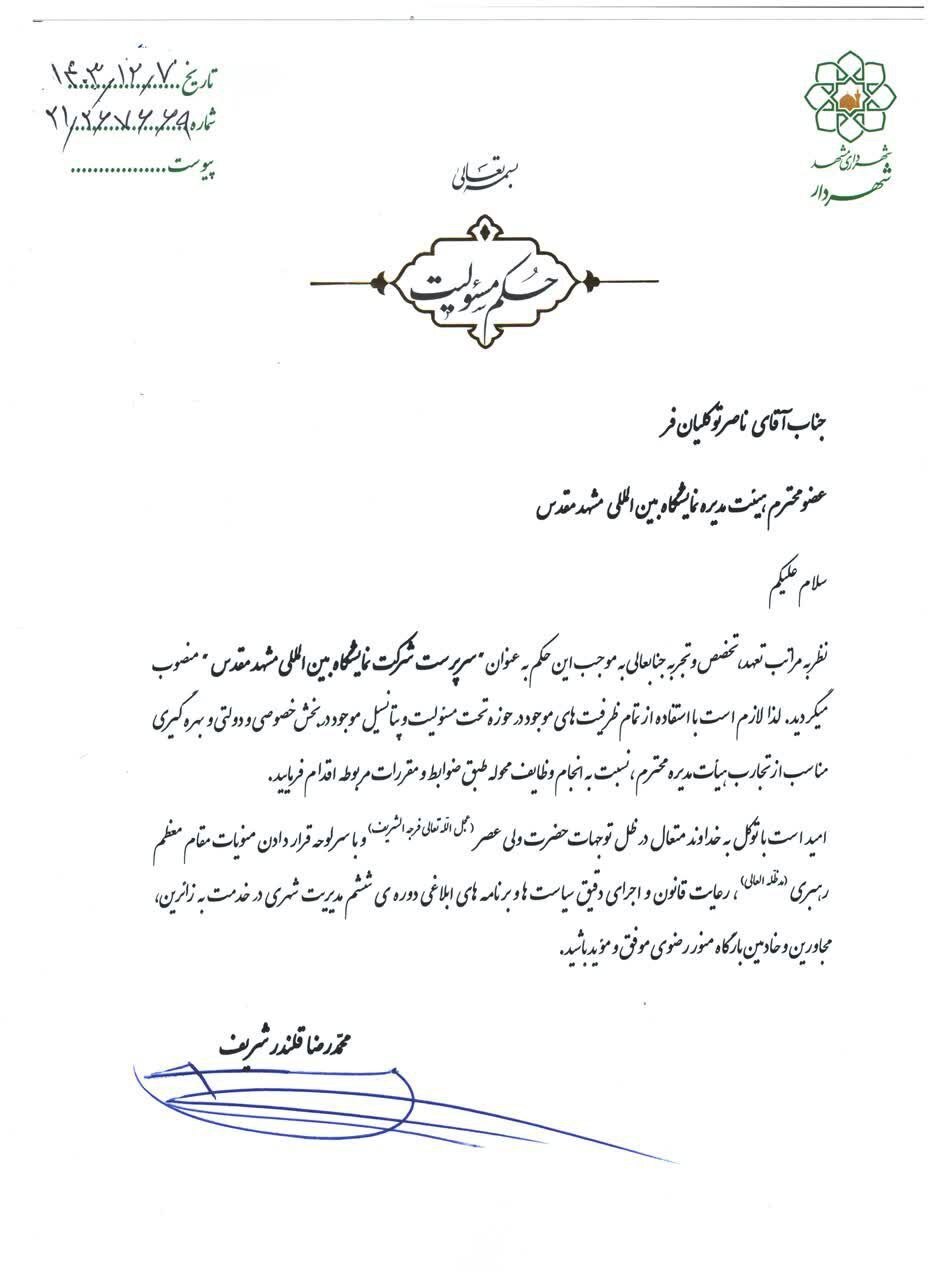 تاریخ ۱۴۰۳/۱۲/۷
شماره ۲۱/۲۶۷۶۶۹
پیوست
شهرداری مشهد
شهردار
بسمه تعالی
حکم مسئولیت
جناب آقای ناصر توکلیان فر
عضو محترم هیئت مدیره نمایشگاه بین المللی مشهد مقدس
سلام علیکم
نظر به مراتب تعهد، تخصص و تجربه جنابعالی به موجب این حکم به عنوان "سرپرست شرکت نمایشگاه بین المللی مشهد مقدس" منصوب
میگردید. لذا لازم است با استفاده از تمام ظرفیت های موجود در حوزه تحت مسئولیت و پتانسیل موجود در بخش خصوصی و دولتی و بهره گیری
مناسب از تجارب هیأت مدیره محترم، نسبت به انجام وظایف محوله طبق ضوابط و مقررات مربوطه اقدام فرمایید.
امید است با توکل به خداوند متعال در ظل توجهات حضرت ولی عصر (عجل الله تعالی فرجه الشریف) و با سرلوحه قرار دادن منویات مقام معظم
رهبری (مدظله العالی)، رعایت قانون و اجرای دقیق سیاست ها و برنامه های ابلاغی دوره ی ششم مدیریت شهری در خدمت به زائرین،
مجاورین و خادمین بارگاه منور رضوی موفق و مؤید باشید.
محمدرضا قلندر شریف